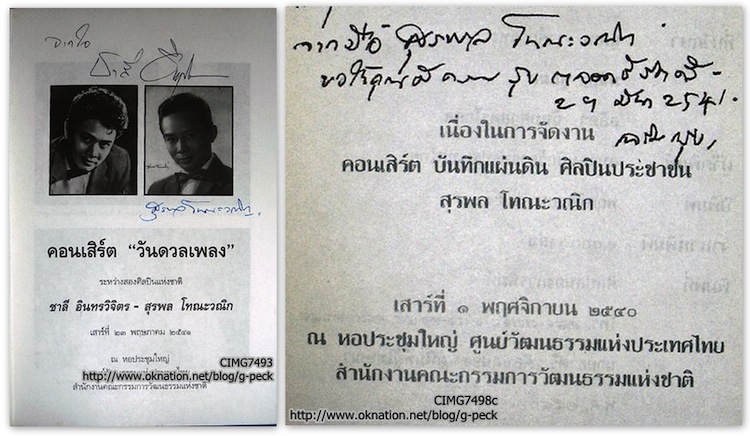 จากใจ
คอนเสิร์ต “วันดวลเพลง”
ระหว่างสองศิลปินแห่งชาติ
ชาลี อินทรวิจิตร - สุรพล โทณะวณิก
เสาร์ที่ ๒๓ พฤษภาคม ๒๕๔๑
ณ หอประชุมใหญ่
วัฒนธรรมแห่งประเทศไทย
สำนักงานคณะกรรมการวัฒนธรรมแห่งชาติ
CIMG7493
http://www.oknation.net/blog/g-peck
สุรพล โทณะวณิก
๒๕๔๑
เนื่องในการจัดงาน
คอนเสิร์ต บันทึกแผ่นดิน ศิลปินประชาชน
สุรพล โทณะวณิก
เสาร์ที่ ๑ พฤศจิกายน ๒๕๔๐
ณ หอประชุมใหญ่ ศูนย์วัฒนธรรมแห่งประเทศไทย
สำนักงานคณะกรรมการวัฒนธรรมแห่งชาติ
CIMG7498c
http://www.oknation.net/blog/g-peck